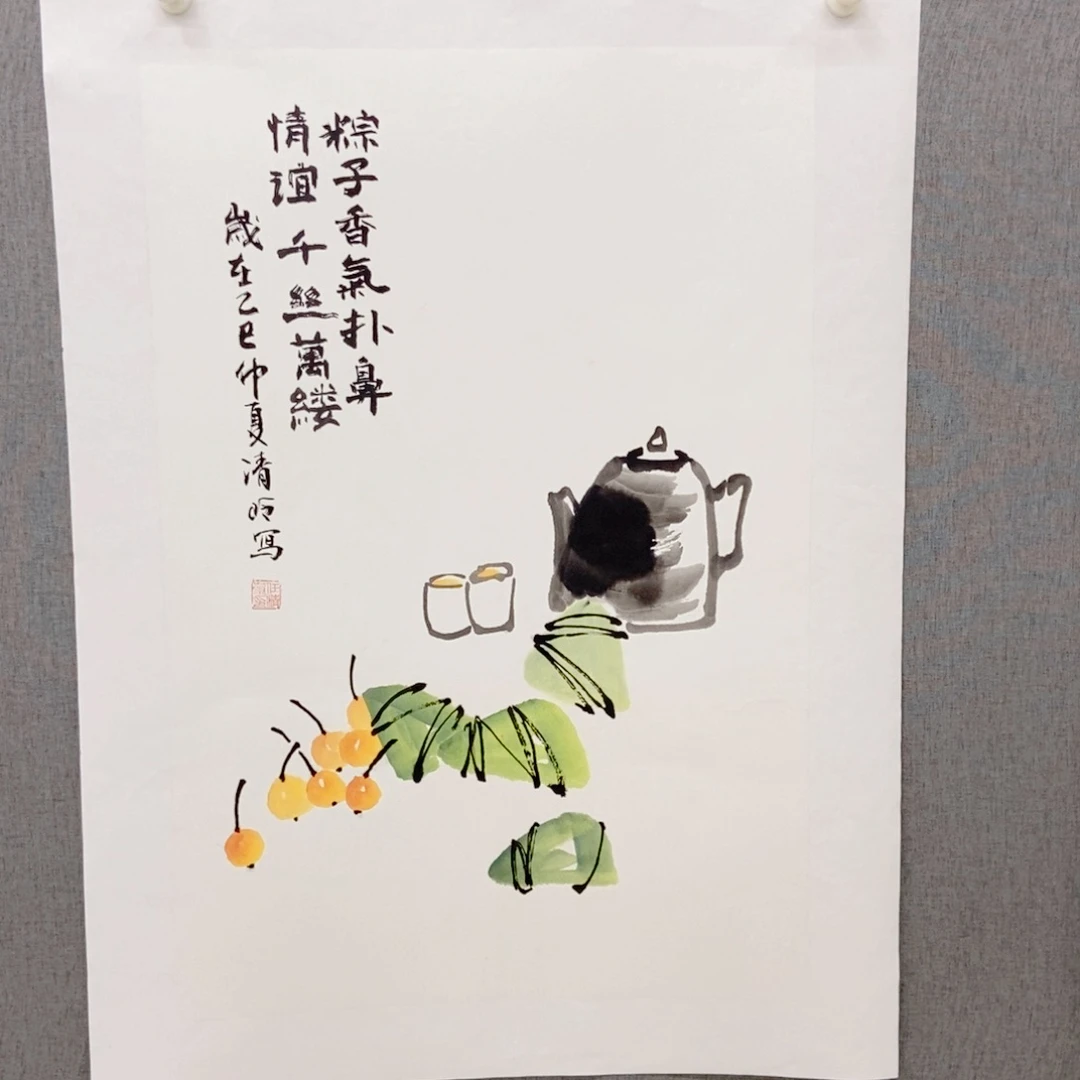 粽子香氣扑鼻
情谊千丝萬缕
歲在乙巳仲夏清
寫